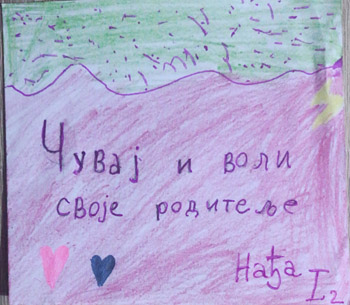 Чувај и воли
своје родитеље
Нађа I₂